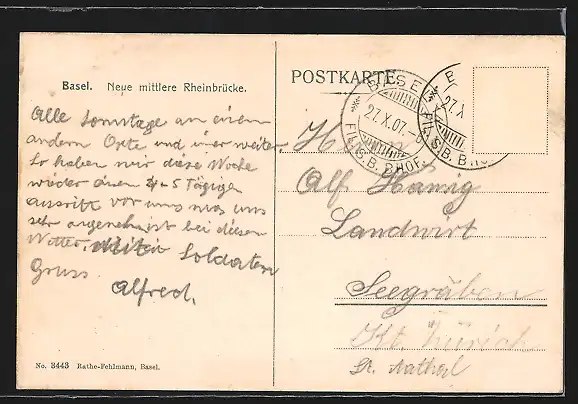 Basel. Neue mittlere Rheinbrücke.
Alle Sonntage an einem
andern Orte und immer weiter.
So haben wir diese Woche
wieder einen 4-5 Tägigen
Ausritt vor uns was uns
sehr angenehm ist bei diesem
Wetter. Soldaten
Gruss
Alfred.
No. 3443 Rathe-Fehlmann, Basel.
POSTKARTE
BASEL
27.X.07.
FIL. S.B. BHOF.
27.X
FIL. S.B. BHOF
Herrn
Alf.
Landwirt
Seegräben
Kt. Zürich